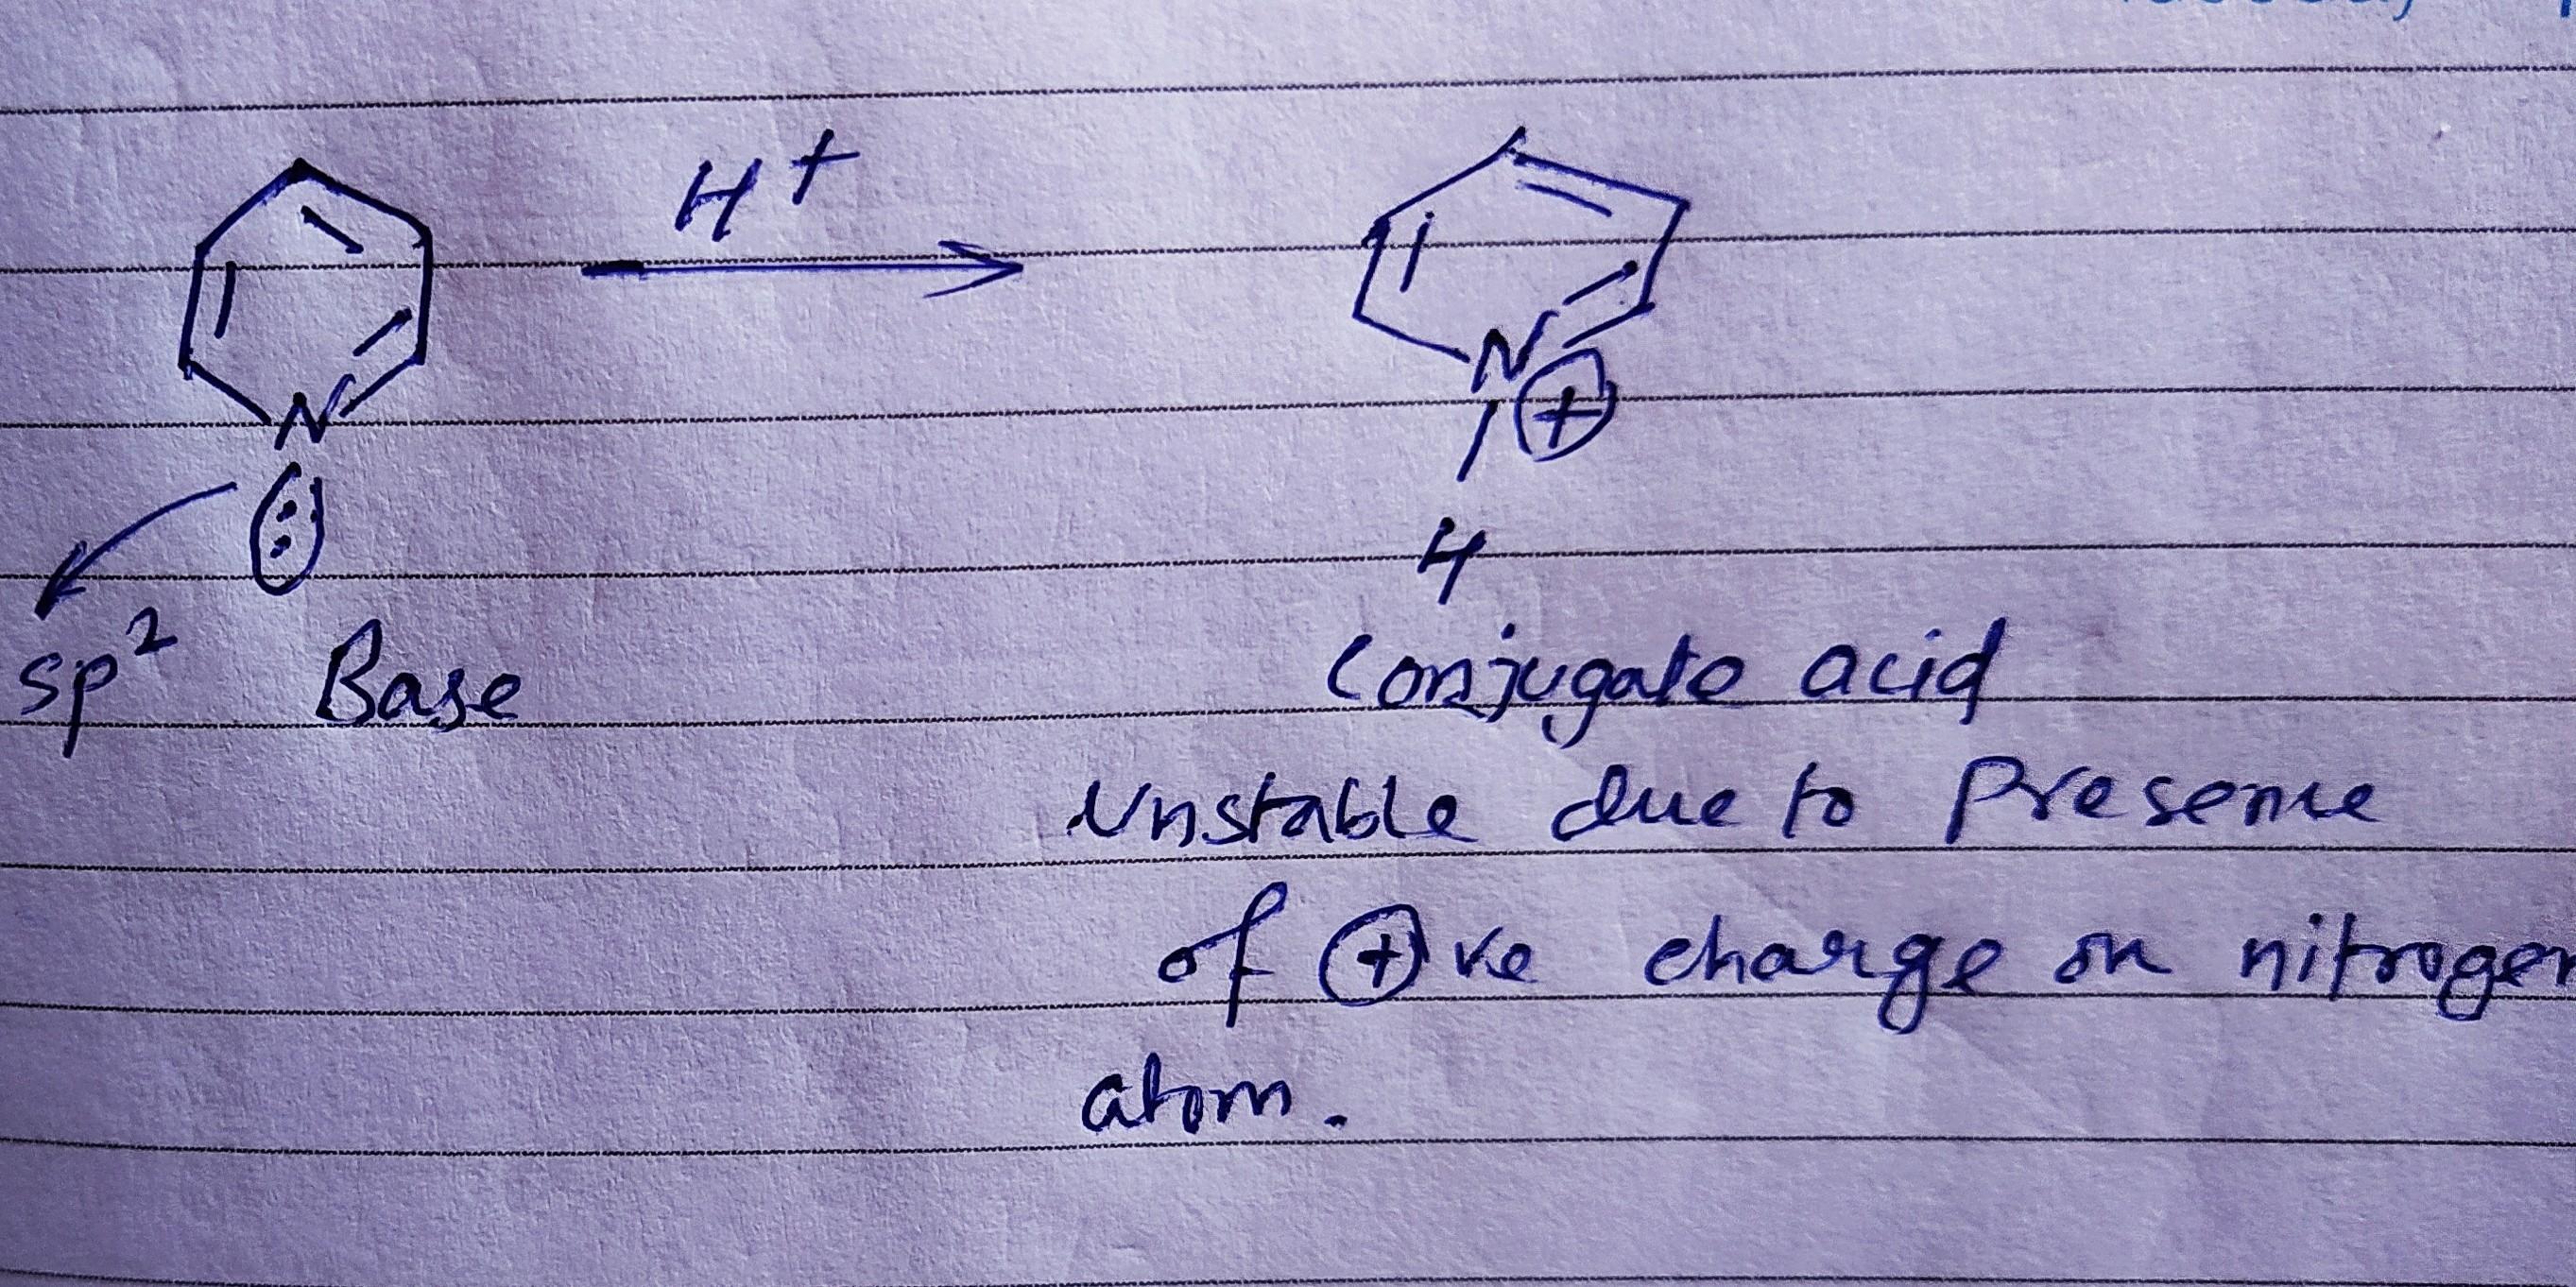 H+
N
N
+
H
sp2 Base
Conjugate acid
Unstable due to Presence
of ⊕ve charge on nitrogen
atom.